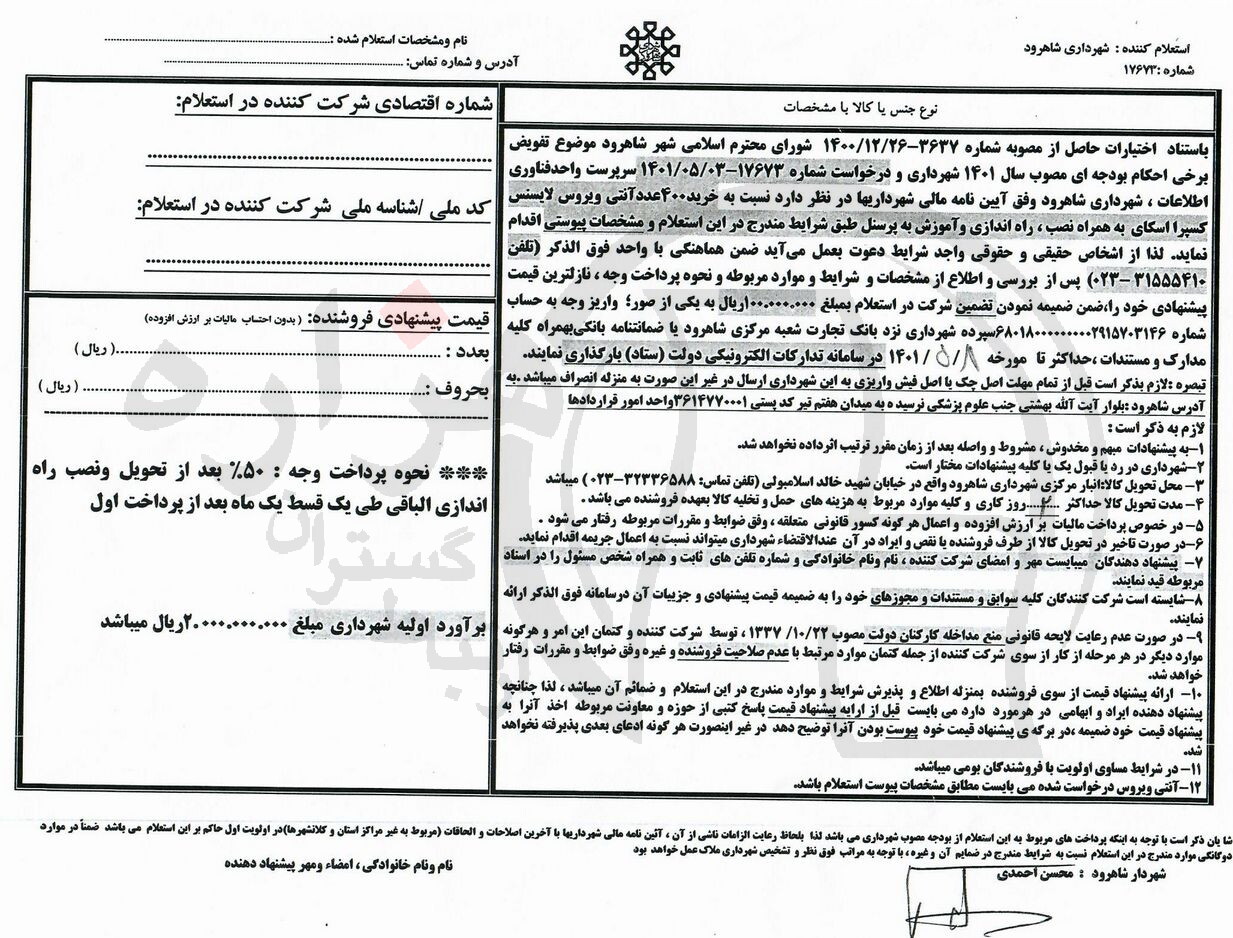 استعلام کننده : شهرداری شاهرود
شماره :۱۷۶۷۳
نام ومشخصات استعلام شده :
آدرس و شماره تماس:
نوع جنس یا کالا با مشخصات
باستناد اختیارات حاصل از مصوبه شماره ۳۶۳۷-۱۴۰۰/۱۲/۲۶ شورای محترم اسلامی شهر شاهرود موضوع تفویض
برخی احکام بودجه ای مصوب سال ۱۴۰۱ شهرداری و درخواست شماره ۱۷۶۷۳-۱۴۰۱/۰۵/۰۳ سرپرست واحدفناوری
اطلاعات ، شهرداری شاهرود وفق آیین نامه مالی شهرداریها در نظر دارد نسبت به خرید۴۰۰عددآنتی ویروس لایسنس
کسپرا اسکای به همراه نصب ، راه اندازی وآموزش به پرسنل طبق شرایط مندرج در این استعلام و مشخصات پیوستی اقدام
نماید. لذا از اشخاص حقیقی و حقوقی واجد شرایط دعوت بعمل می‌آید ضمن هماهنگی با واحد فوق الذکر (تلفن
۳۱۵۵۵۴۱۰ -۰۲۳) پس از بررسی و اطلاع از مشخصات و شرایط و موارد مربوطه و نحوه پرداخت وجه ، نازلترین قیمت
پیشنهادی خود را،ضمن ضمیمه نمودن تضمین شرکت در استعلام بمبلغ ۱۰۰.۰۰۰.۰۰۰ریال به یکی از صور؛ واریز وجه به حساب
شماره ۶۸۰۱۸۰۰۰۰۰۰۰۰۰۲۹۱۵۷۰۳۱۴۶سپرده شهرداری نزد بانک تجارت شعبه مرکزی شاهرود یا ضمانتنامه بانکی‌بهمراه کلیه
مدارک و مستندات ،حداکثر تا مورخه ۱۴۰۱/۵/۱۸ در سامانه تدارکات الکترونیکی دولت (ستاد) بارگذاری نمایند.
تبصره :لازم بذکر است قبل از تمام مهلت اصل چک یا اصل فیش واریزی به این شهرداری ارسال در غیر این صورت به منزله انصراف میباشد .به
آدرس شاهرود :بلوار آیت الله بهشتی جنب علوم پزشکی نرسیده به میدان هفتم تیر کد پستی ۳۶۱۴۷۷۰۰۰۱واحد امور قراردادها
لازم به ذکر است :
۱-به پیشنهادات مبهم و مخدوش ، مشروط و واصله بعد از زمان مقرر ترتیب اثرداده نخواهد شد.
۲-شهرداری در رد یا قبول یک یا کلیه پیشنهادات مختار است.
۳- محل تحویل کالا:انبار مرکزی شهرداری شاهرود واقع در خیابان شهید خالد اسلامبولی (تلفن تماس: ۳۲۳۳۶۵۸۸-۰۲۳ ) میباشد
۴- مدت تحویل کالا حداکثر ..۲.. روز کاری و کلیه موارد مربوط به هزینه های حمل و تخلیه کالا بعهده فروشنده می باشد .
۵- در خصوص پرداخت مالیات بر ارزش افزوده و اعمال هر گونه کسور قانونی متعلقه ، وفق ضوابط و مقررات مربوطه رفتار می شود .
۶-در صورت تاخیر در تحویل کالا از طرف فروشنده یا نقص و ایراد در آن عندالاقتضاء شهرداری میتواند نسبت به اعمال جریمه اقدام نماید.
۷- پیشنهاد دهندگان میبایست مهر و امضای شرکت کننده ، نام ونام خانوادگی و شماره تلفن های ثابت و همراه شخص مسئول را در اسناد
مربوطه قید نمایند.
۸-شایسته است شرکت کنندگان کلیه سوابق و مستندات و مجوزهای خود را به ضمیمه قیمت پیشنهادی و جزییات آن درسامانه فوق الذکر ارائه
نمایند.
۹- در صورت عدم رعایت لایحه قانونی منع مداخله کارکنان دولت مصوب ۱۳۳۷/۱۰/۲۲ ، توسط شرکت کننده و کتمان این امر و هرگونه
موارد دیگر در هر مرحله از کار از سوی شرکت کننده از جمله کتمان موارد مرتبط با عدم صلاحیت فروشنده و غیره وفق ضوابط و مقررات رفتار
خواهد شد.
۱۰- ارائه پیشنهاد قیمت از سوی فروشنده بمنزله اطلاع و پذیرش شرایط و موارد مندرج در این استعلام و ضمائم آن میباشد ، لذا چنانچه
پیشنهاد دهنده ایراد و ابهامی در هرمورد دارد می بایست قبل از ارایه پیشنهاد قیمت پاسخ کتبی از حوزه و معاونت مربوطه اخذ آنرا به
پیشنهاد قیمت خود ضمیمه ،در برگه ی پیشنهاد قیمت خود پیوست بودن آنرا توضیح دهد در غیر اینصورت هر گونه ادعای بعدی پذیرفته نخواهد
شد.
۱۱- در شرایط مساوی اولویت با فروشندگان بومی میباشد.
۱۲-آنتی ویروس درخواست شده می بایست مطابق مشخصات پیوست استعلام باشد.
شماره اقتصادی شرکت کننده در استعلام:
کد ملی /شناسه ملی شرکت کننده در استعلام:
قیمت پیشنهادی فروشنده: ( بدون احتساب مالیات بر ارزش افزوده)
بعدد : ( ریال )
بحروف : ( ریال )
*** نحوه پرداخت وجه : ۵۰٪ بعد از تحویل ونصب راه
اندازی الباقی طی یک قسط یک ماه بعد از پرداخت اول
برآورد اولیه شهرداری مبلغ ۲.۰۰۰.۰۰۰.۰۰۰ریال میباشد
شا یان ذکر است با توجه به اینکه پرداخت های مربوط به این استعلام از بودجه مصوب شهرداری می باشد لذا بلحاظ رعایت الزامات ناشی از آن ، آئین نامه مالی شهرداریها با آخرین اصلاحات و الحاقات (مربوط به غیر مراکز استان و کلانشهرها)در اولویت اول حاکم بر این استعلام می باشد ضمناً در موارد
دوگانگی موارد مندرج در این استعلام نسبت به شرایط مندرج در ضمایم آن و غیره ، با توجه به مراتب فوق نظر و تشخیص شهرداری ملاک عمل خواهد بود
شهردار شاهرود : محسن احمدی
نام ونام خانوادگی ، امضاء ومهر پیشنهاد دهنده